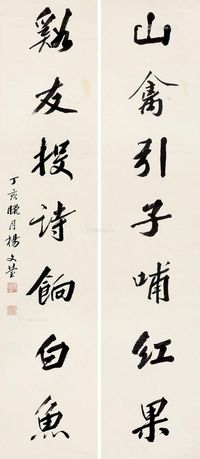 山禽引子哺红果
谿友投诗饷白魚
丁亥腊月楊文莹